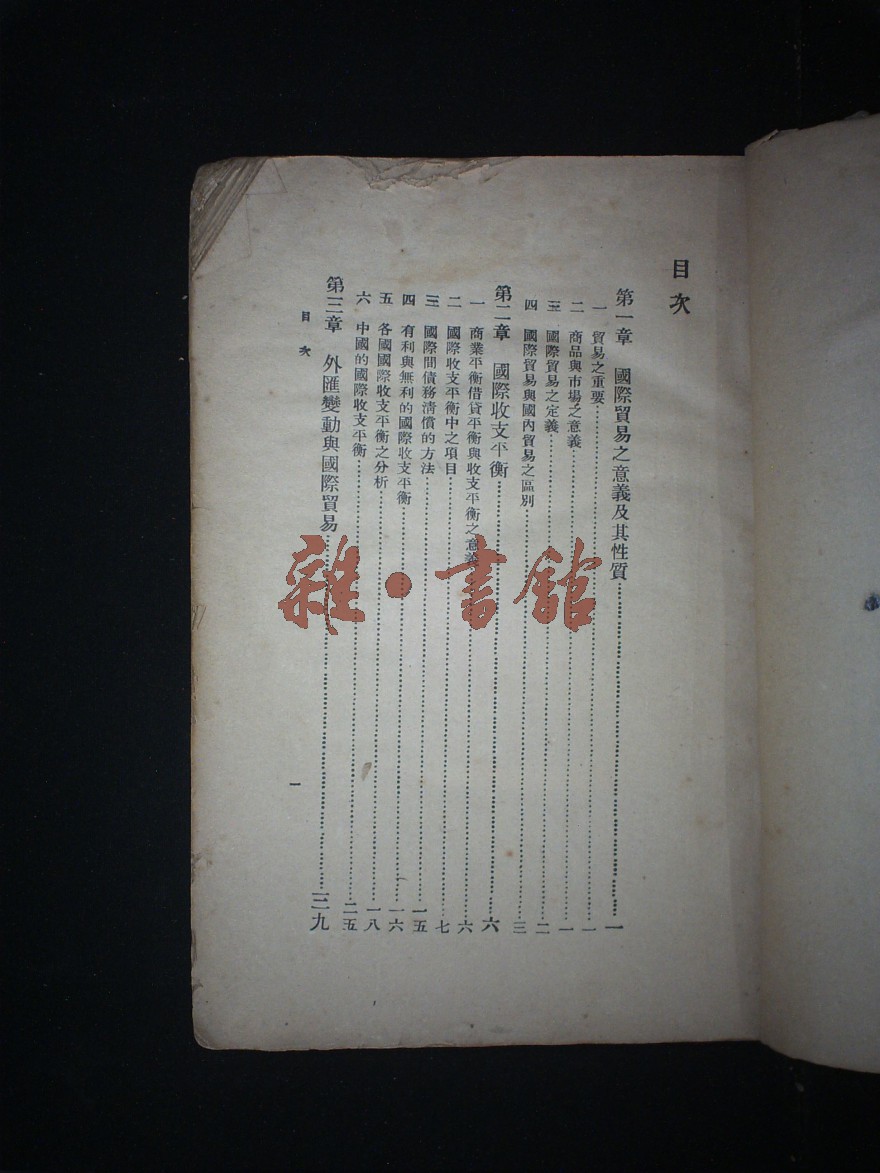 目次
第一章 國際貿易之意義及其性質……一
一 貿易之重要……一
二 商品與市場之意義……一
三 國際貿易之定義……二
四 國際貿易與國內貿易之區別……三
第二章 國際收支平衡……六
一 商業平衡借貸平衡與收支平衡之意義……六
二 國際收支平衡中之項目……七
三 國際間債務清償的方法……一五
四 有利與無利的國際收支平衡……一六
五 各國國際收支平衡之分析……一八
六 中國的國際收支平衡……二五
第三章 外匯變動與國際貿易……二九
目次
一
雜·書館